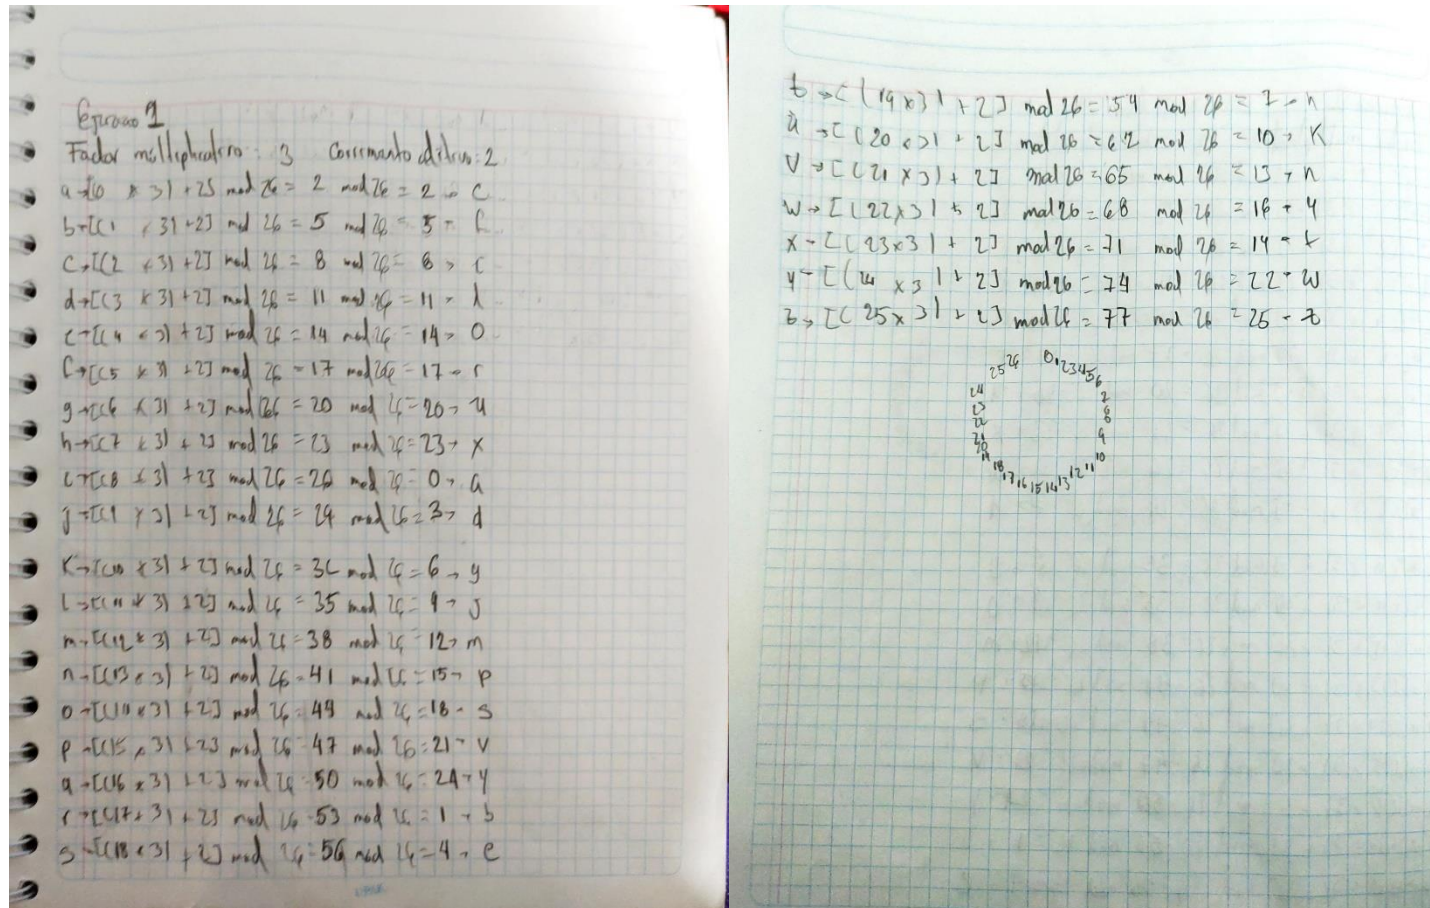 Ejercicio 1
Factor multiplicativo: 3 Corrimiento aditivo: 2
a→[(0 × 3) + 2] mod 26 = 2 mod 26 = 2 → C
b→[(1 × 3) + 2] mod 26 = 5 mod 26 = 5 - f
C→[(2 × 3) + 2] mod 26 = 8 mod 26 = 8 > i
d→[(3 × 3) + 2] mod 26 = 11 mod 26 = 11 - l
e→[(4 × 3) + 2] mod 26 = 14 mod 26 = 14 > O
f→[(5 × 3) + 2] mod 26 = 17 mod 26 = 17 → r
g→[(6 × 3) + 2] mod 26 = 20 mod 26 = 20 → u
h→[(7 × 3) + 2] mod 26 = 23 mod 26 = 23 → x
i→[(8 × 3) + 2] mod 26 = 26 mod 26 = 0 → a
j→[(9 × 3) + 2] mod 26 = 29 mod 26 = 3 → d
K→[(10 × 3) + 2] mod 26 = 32 mod 26 = 6 → g
l→[(11 × 3) + 2] mod 26 = 35 mod 26 = 9 → j
m→[(12 × 3) + 2] mod 26 = 38 mod 26 = 12 → m
n→[(13 × 3) + 2] mod 26 = 41 mod 26 = 15 → p
o→[(14 × 3) + 2] mod 26 = 44 mod 26 = 18 - s
p→[(15 × 3) + 2] mod 26 = 47 mod 26 = 21 - v
q→[(16 × 3) + 2] mod 26 = 50 mod 26 = 24 → y
r→[(17 × 3) + 2] mod 26 = 53 mod 26 = 1 → b
s→[(18 × 3) + 2] mod 26 = 56 mod 26 = 4 → e
t→[(19 × 3) + 2] mod 26 = 59 mod 26 = 7 - h
u→[(20 × 3) + 2] mod 26 = 62 mod 26 = 10 → K
V→[(21 × 3) + 2] mod 26 = 65 mod 26 = 13 → n
w→[(22 × 3) + 2] mod 26 = 68 mod 26 = 16 → q
x→[(23 × 3) + 2] mod 26 = 71 mod 26 = 19 - t
y→[(24 × 3) + 2] mod 26 = 74 mod 26 = 22 - w
z→[(25 × 3) + 2] mod 26 = 77 mod 26 = 25 - z
0 1 2 3 4 5 6
9 10 11 12 13 14 15 16 17 18 19 20 21 22 23 24 25 26